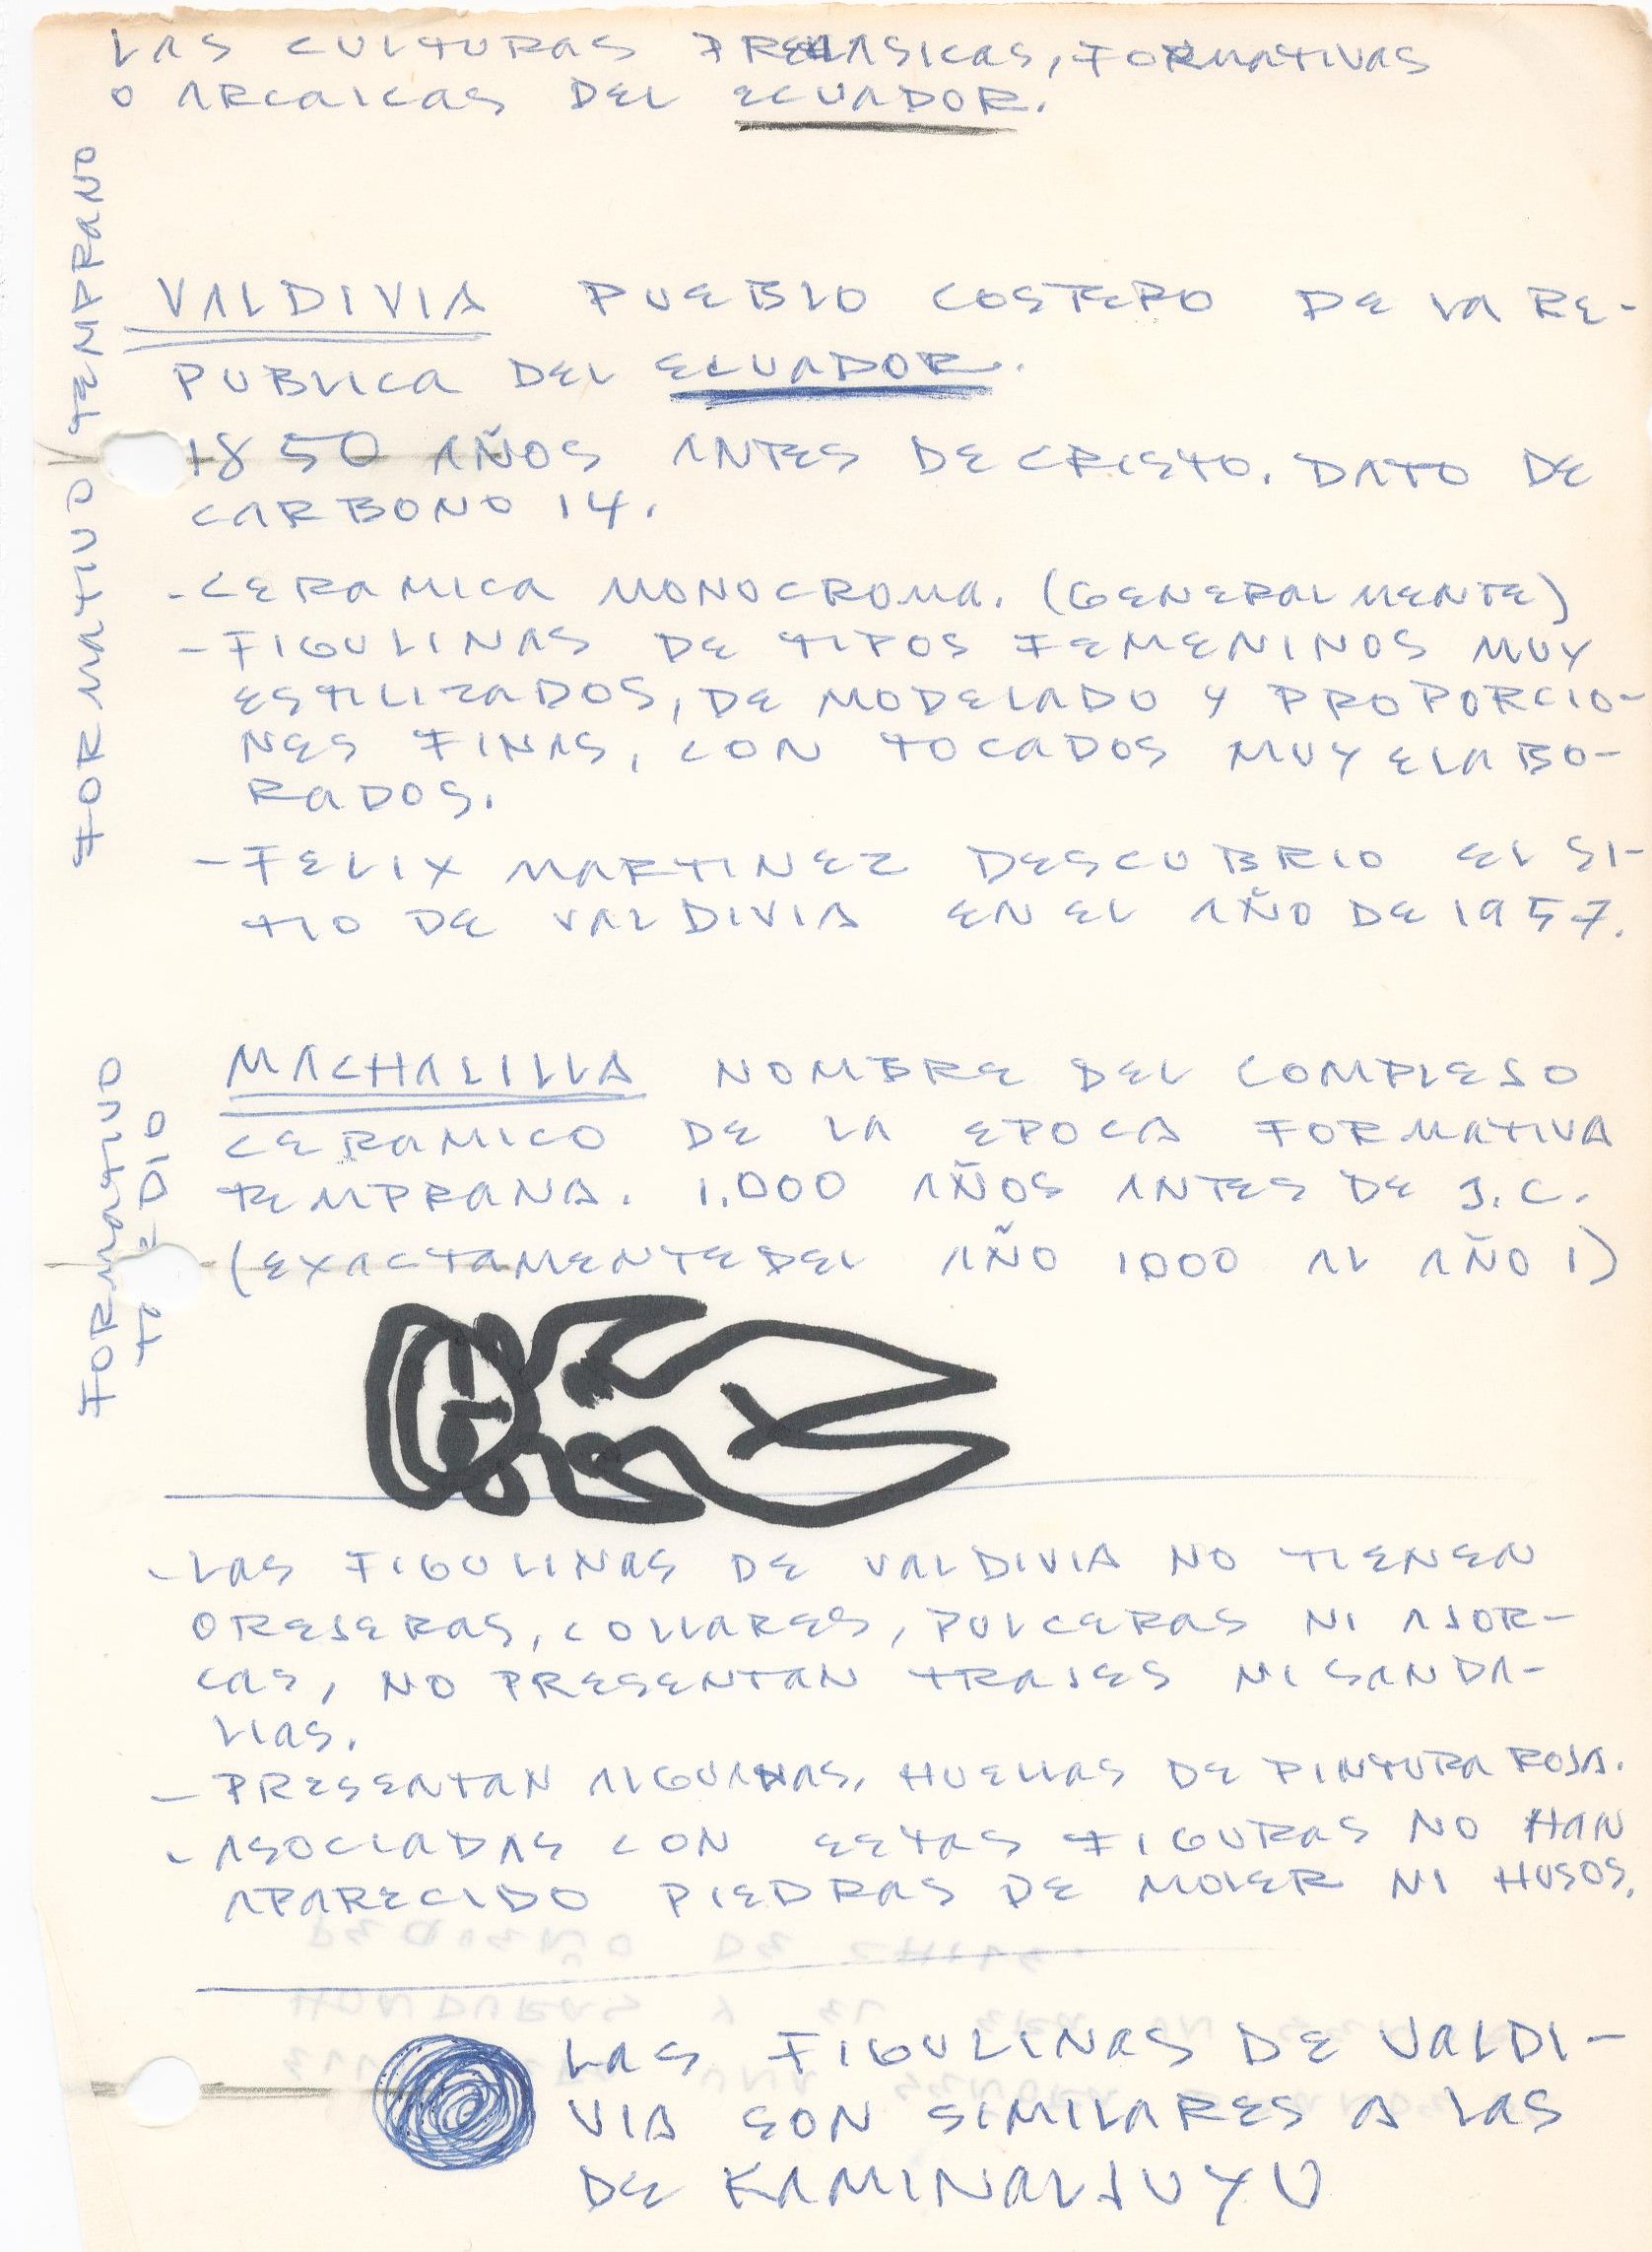 LAS CULTURAS PRECLASICAS, FORMATIVAS
O ARCAICAS DEL ECUADOR.
FORMATIVO TEMPRANO
VALDIVIA PUEBLO COSTERO DE LA RE-
PUBLICA DEL ECUADOR.
1850 AÑOS ANTES DE CRISTO. DATO DE
CARBONO 14.
- CERAMICA MONOCROMA. (GENERALMENTE)
- FIGULINAS DE TIPOS FEMENINOS MUY
ESTILIZADOS, DE MODELADO Y PROPORCIO-
NES FINAS, CON TOCADOS MUY ELABO-
RADOS.
- FELIX MARTINEZ DESCUBRIO EL SI-
TIO DE VALDIVIA EN EL AÑO DE 1957.
FORMATIVO
MACHALILLA NOMBRE DEL COMPLEJO
CERAMICO DE LA EPOCA FORMATIVA
TEMPRANA. 1.000 AÑOS ANTES DE J.C.
(EXACTAMENTE DEL AÑO 1000 AL AÑO 1)
- LAS FIGULINAS DE VALDIVIA NO TIENEN
OREJERAS, COLLARES, PULCERAS NI AJOR-
CAS, NO PRESENTAN TRAJES NI SANDA-
LIAS.
- PRESENTAN ALGUNAS, HUELLAS DE PINTURA ROJA.
- ASOCIADAS CON ESTAS FIGURAS NO HAN
APARECIDO PIEDRAS DE MOLER NI HUSOS.
LAS FIGULINAS DE VALDI-
VIA SON SIMILARES A LAS
DE KAMINALJUYU